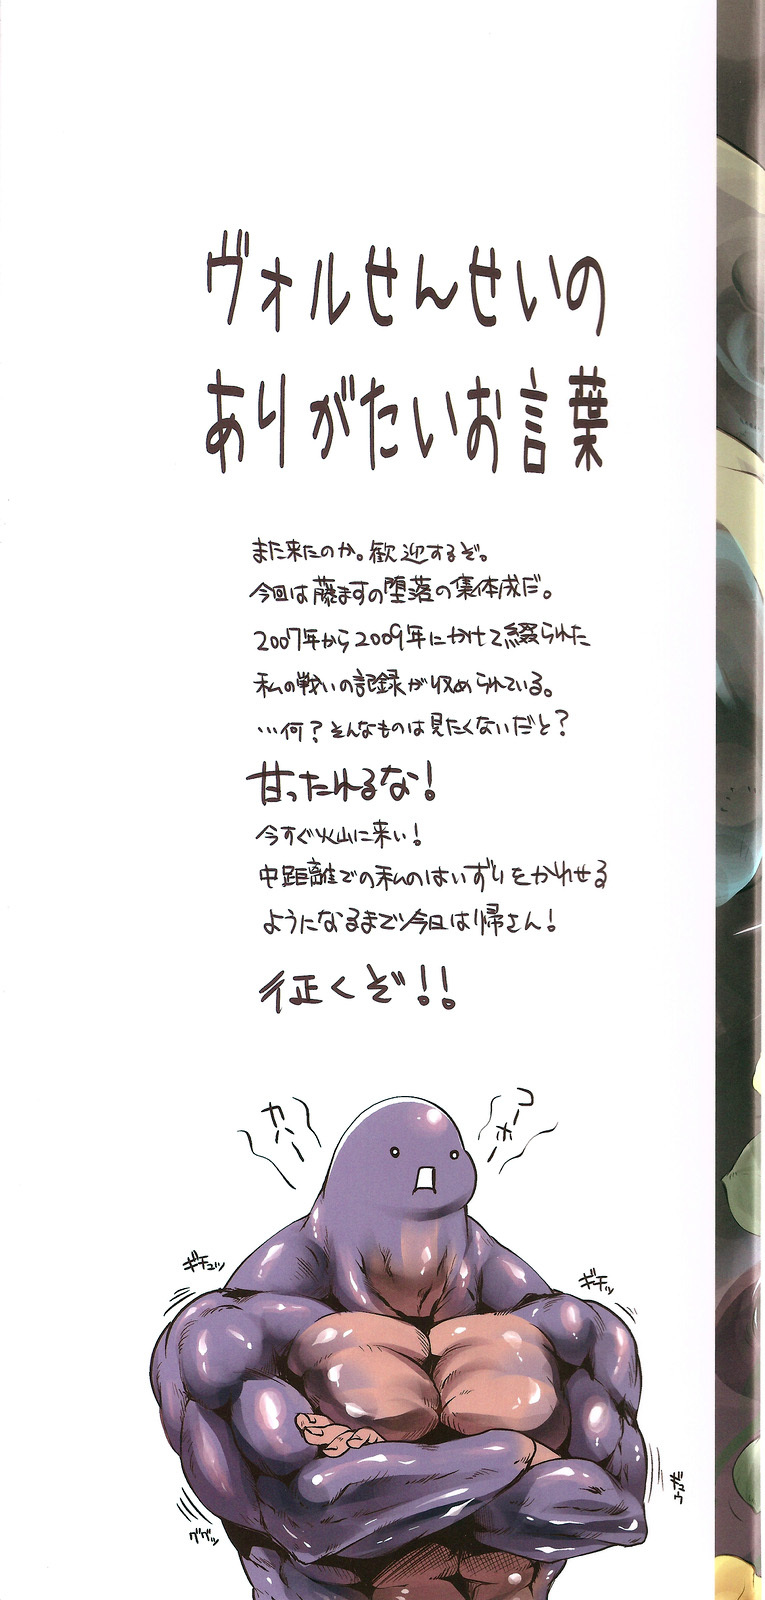 ヴォルせんせいの
ありがたいお言葉
また来たのか。歓迎するぞ。
今回は藤ますの堕落の集体成だ。
2007年から2009年にかけて綴られた
私の戦いの記録が収められている。
…何?そんなものは見たくないだと?
甘ったれるな!
今すぐ火山に来い!
中距離での私のはいずりをかわせる
ようになるまで今日は帰さん!
征くぞ!!
カハー
コーホー
ギチュッ
ギチッ
ググッ